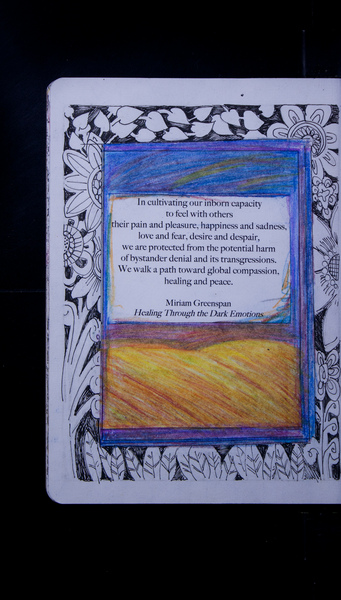 In cultivating our inborn capacity
to feel with others
their pain and pleasure, happiness and sadness,
love and fear, desire and despair,
we are protected from the potential harm
of bystander denial and its transgressions.
We walk a path toward global compassion,
healing and peace.
Miriam Greenspan
Healing Through the Dark Emotions